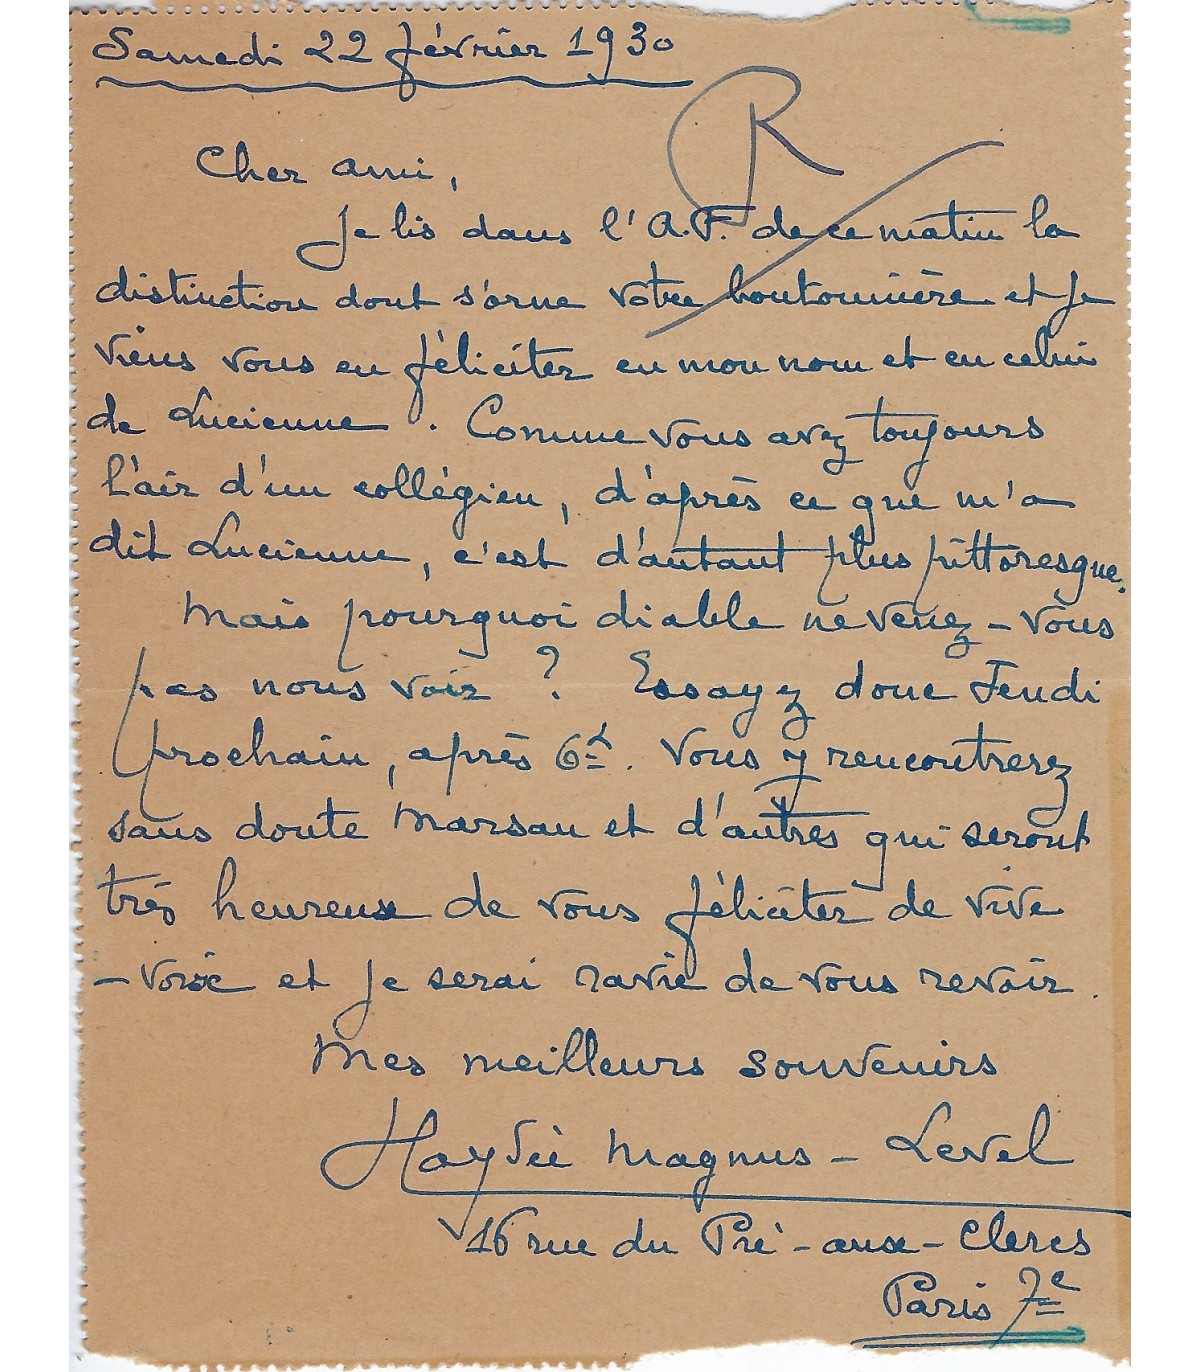 Samedi 22 février 1930
R
Cher ami,
Je lis dans l'A.F. de ce matin la
distinction dont s'orne votre boutonnière et je
viens vous en féliciter en mon nom et en celui
de Lucienne. Comme vous avez toujours
l'air d'un collégien, d'après ce que m'a
dit Lucienne, c'est d'autant plus pittoresque.
Mais pourquoi diable ne venez-vous
pas nous voir ? Essayez donc Jeudi
prochain, après 6h. Vous y rencontrerez
sans doute Marsan et d'autres qui seront
très heureux de vous féliciter de vive
-voix et je serai ravie de vous revoir.
Mes meilleurs souvenirs
Haydée Magnus-Level
16 rue du Pré-aux-Clercs
Paris 7e